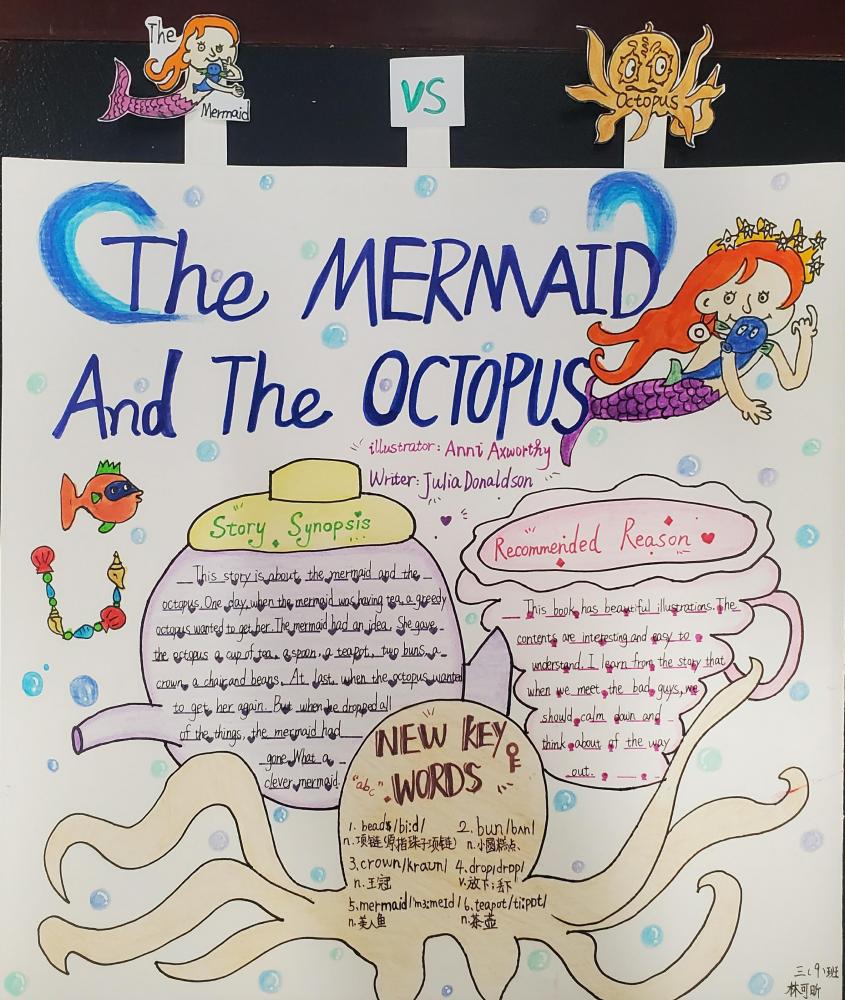 The
Mermaid
VS
Octopus
The MERMAID
And The OCTOPUS
illustrator: Anni Axworthy
Writer: Julia Donaldson
Story Synopsis
This story is about the mermaid and the
octopus. One day, when the mermaid was having tea, a greedy
octopus wanted to get her. The mermaid had an idea. She gave
the octopus a cup of tea, a spoon, a teapot, two buns, a
crown, a chair and beans. At last, when the octopus wanted
to get her again. But when he dropped all
of the things, the mermaid had
gone. What a
clever mermaid.
Recommended Reason
This book has beautiful illustrations. The
contents are interesting and easy to
understand. I learn from the story that
when we meet the bad guys, we
should calm down and
think about of the way
out.
NEW KEY
"abc" WORDS
1. beads/bi:d/ 2. bun/bʌn/
n. 项链(原指珠子项链) n. 小圆糕点、
3. crown/kraʊn/ 4. drop/drɒp/
n. 王冠 v. 放下;丢下
5. mermaid/'mɜ:meɪd/ 6. teapot/ti:pɒt/
n. 美人鱼 n. 茶壶
三(9)班
林可昕